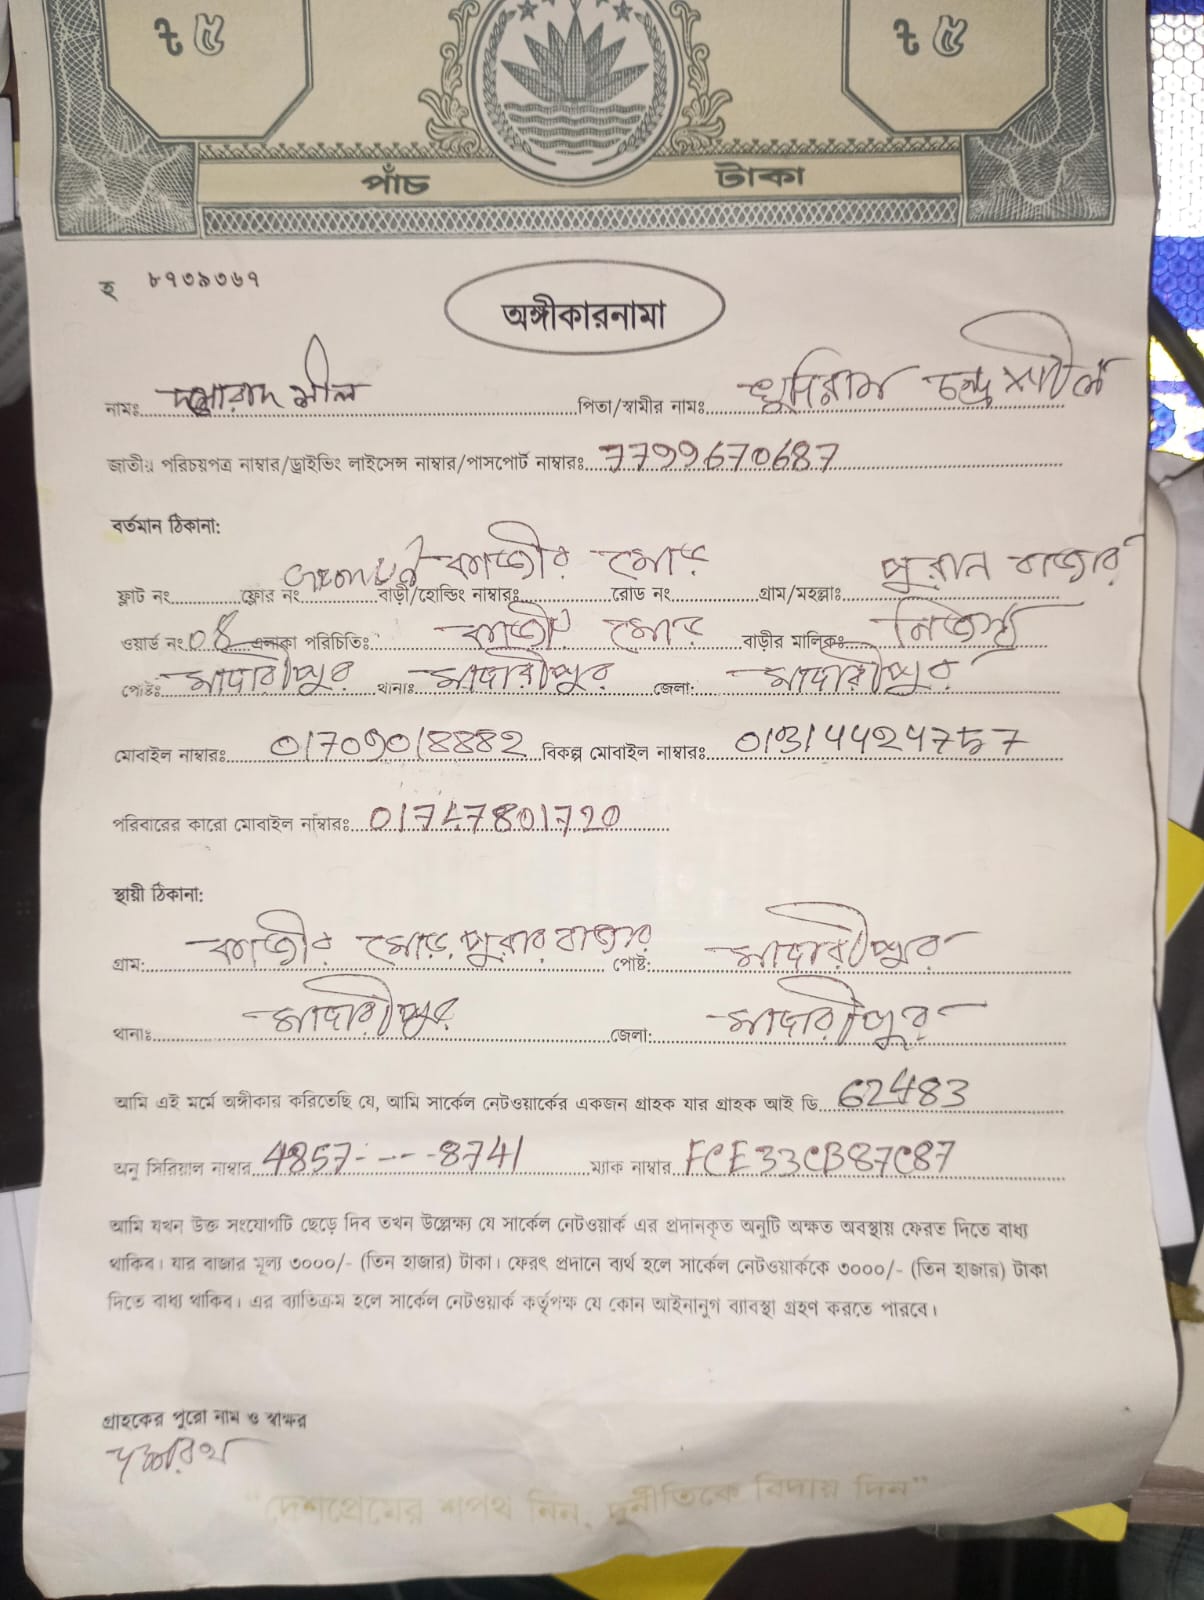 ৳ ৫ ৳ ৫
পাঁচ টাকা
হ ৮৭৩৯৩৬৭
অঙ্গীকারনামা
নামঃ শীল পিতা/স্বামীর নামঃ ক্ষুদিরাম চন্দ্র শীল
জাতীয় পরিচয়পত্র নাম্বার/ড্রাইভিং লাইসেন্স নাম্বার/পাসপোর্ট নাম্বারঃ 7799670687
বর্তমান ঠিকানা:
ফ্লাট নং ফ্লোর নং Ground বাড়ী/হোল্ডিং নাম্বারঃ কাজীর মোড় রোড নং গ্রাম/মহল্লাঃ পুরান বাজার
ওয়ার্ড নং 08 এলাকা পরিচিতিঃ কাজীর মোড় বাড়ীর মালিকঃ নিজস্ব
পোষ্টঃ মাদারীপুর থানাঃ মাদারীপুর জেলা: মাদারীপুর
মোবাইল নাম্বারঃ 01709018882 বিকল্প মোবাইল নাম্বারঃ
পরিবারের কারো মোবাইল নাম্বারঃ 01747801720
স্থায়ী ঠিকানা:
গ্রাম: কাজীর মোড়, পুরান বাজার পোষ্ট: মাদারীপুর
থানাঃ মাদারীপুর জেলা: মাদারীপুর
আমি এই মর্মে অঙ্গীকার করিতেছি যে, আমি সার্কেল নেটওয়ার্কের একজন গ্রাহক যার গ্রাহক আই ডি 62483
অনু সিরিয়াল নাম্বার 4857----8741 ম্যাক নাম্বার FCE33CB87C87
আমি যখন উক্ত সংযোগটি ছেড়ে দিব তখন উল্লেক্ষ্য যে সার্কেল নেটওয়ার্ক এর প্রদানকৃত অনুটি অক্ষত অবস্থায় ফেরত দিতে বাধ্য
থাকিব। যার বাজার মূল্য ৩০০০/- (তিন হাজার) টাকা। ফেরৎ প্রদানে ব্যর্থ হলে সার্কেল নেটওয়ার্ককে ৩০০০/- (তিন হাজার) টাকা
দিতে বাধ্য থাকিব। এর ব্যতিক্রম হলে সার্কেল নেটওয়ার্ক কর্তৃপক্ষ যে কোন আইনানুগ ব্যাবস্থা গ্রহণ করতে পারবে।
গ্রাহকের পুরো নাম ও স্বাক্ষর
"দেশপ্রেমের শপথ নিন, দুর্নীতিকে বিদায় দিন"